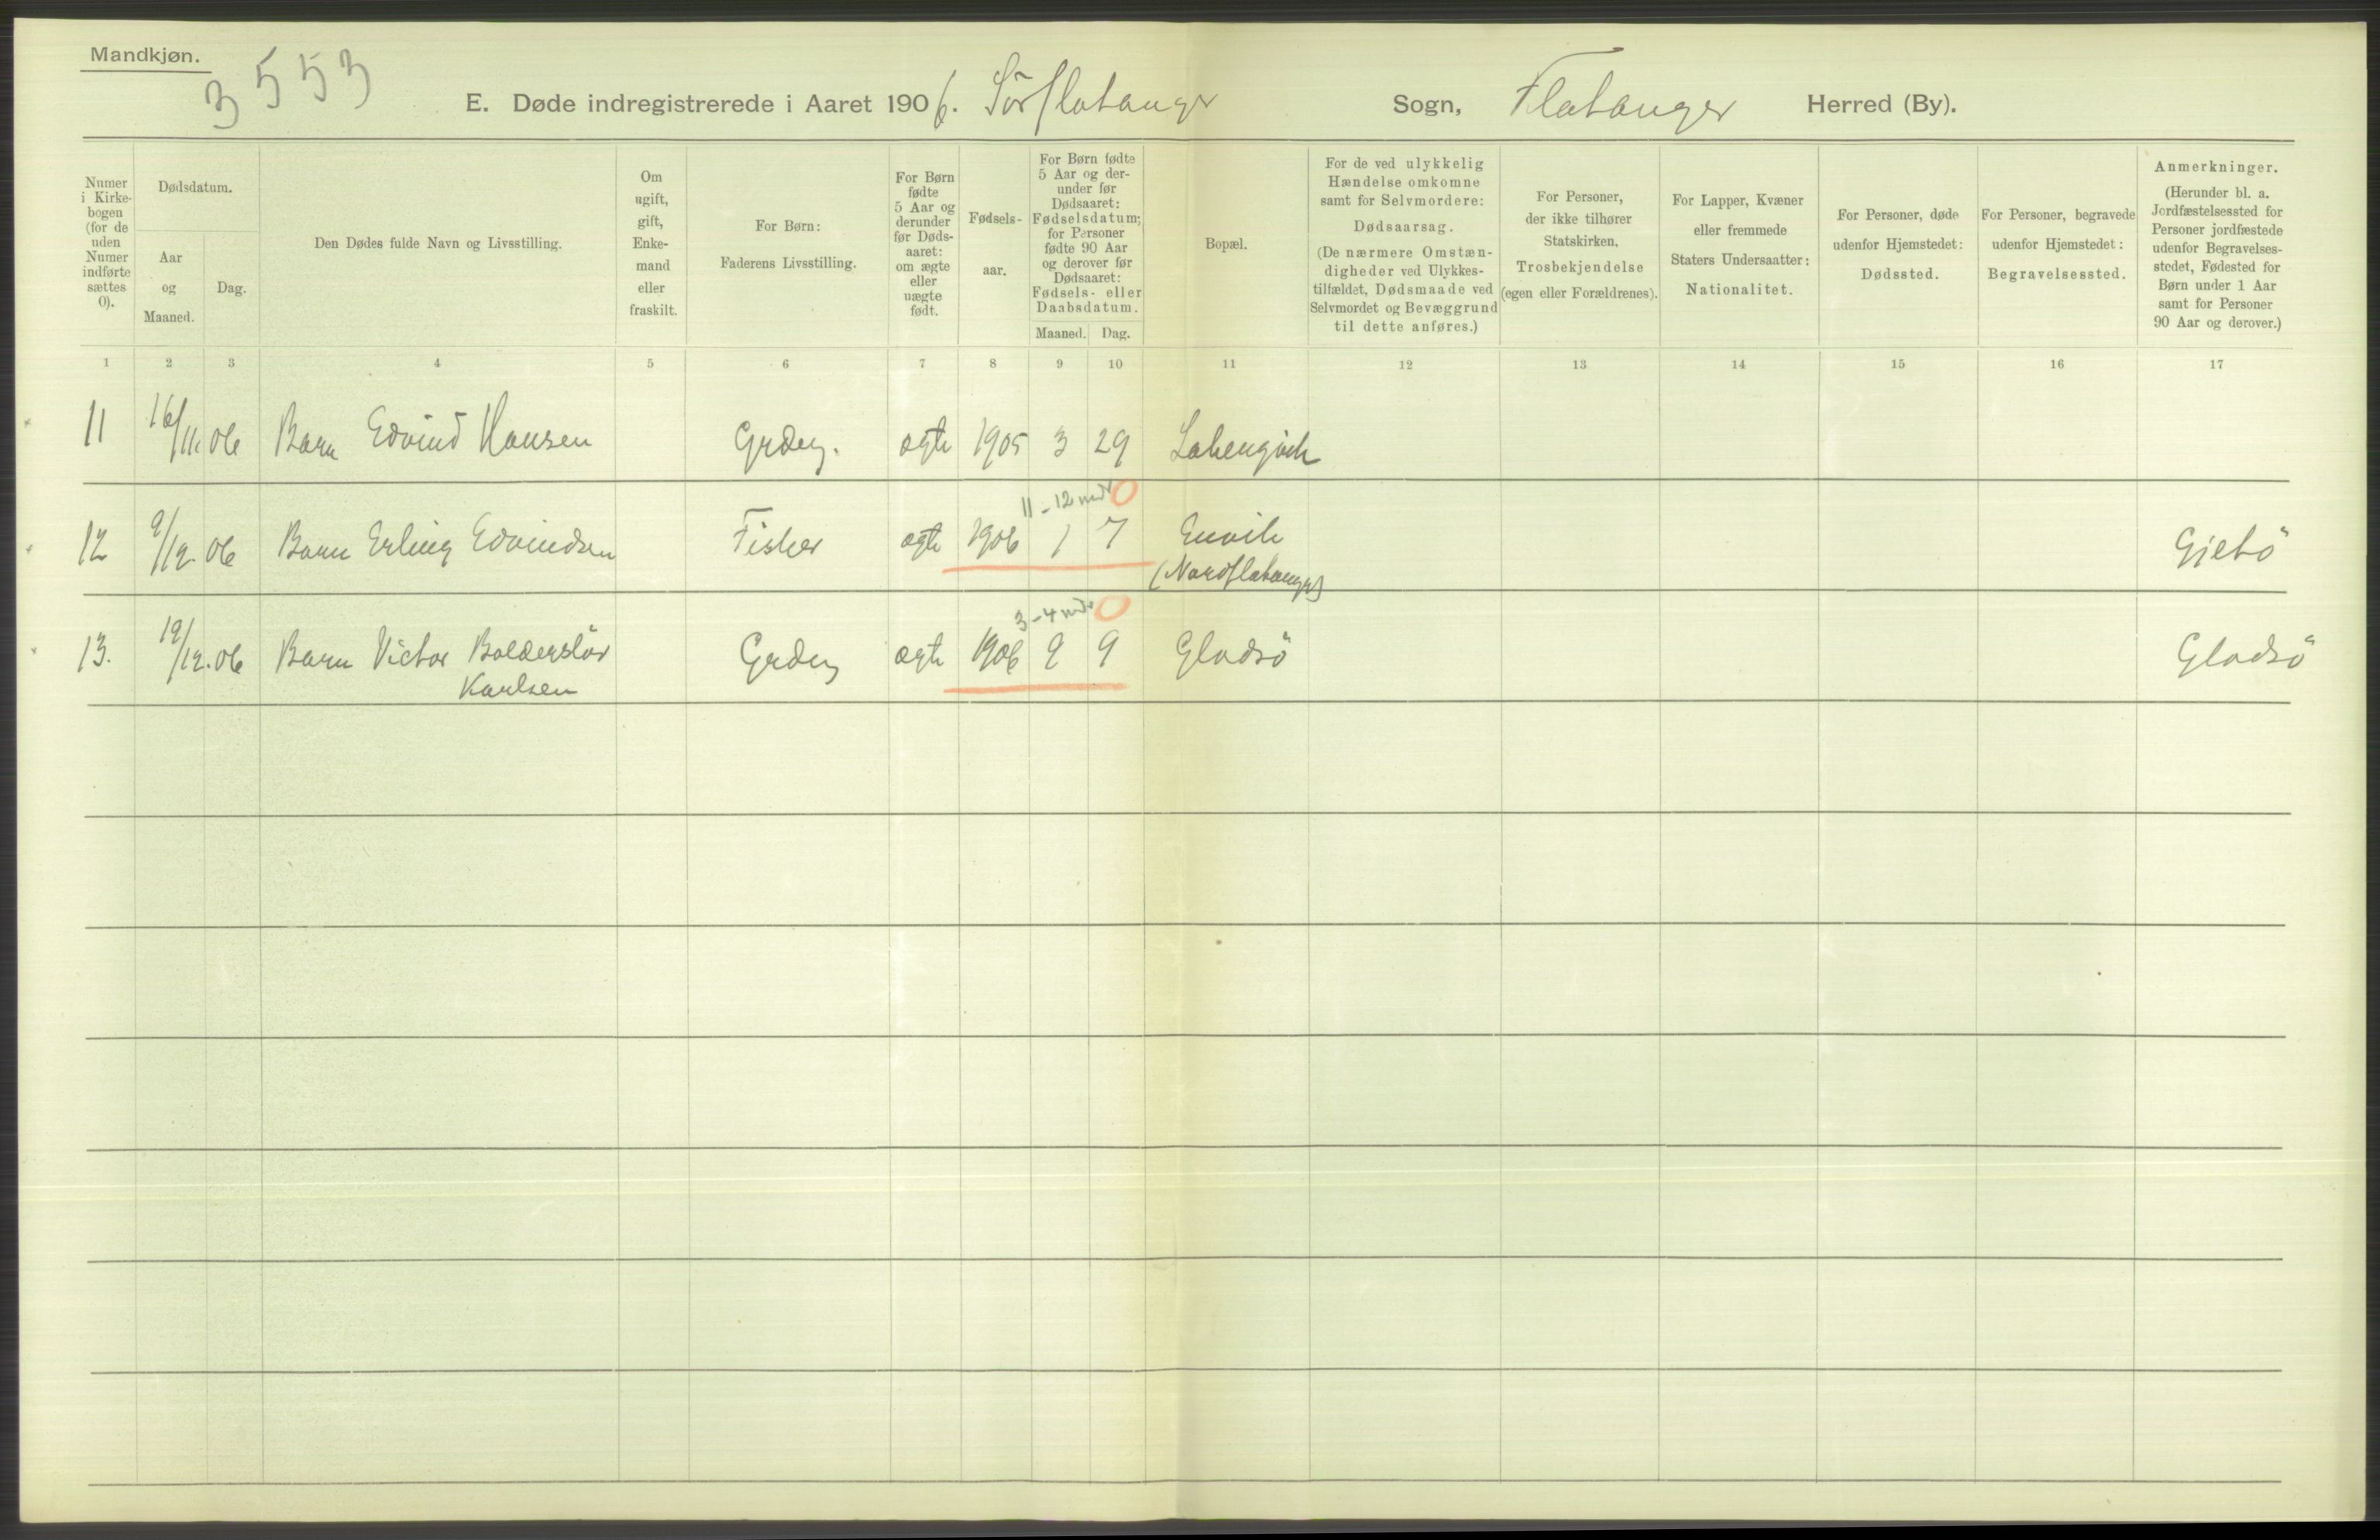 Mandkjøn.
3 5 5 3
E. Døde indregistrerede i Aaret 1906. Sörflatanger Sogn, Flatanger Herred (By).
Numer
i Kirke-
bogen
(for de
uden
Numer
indførte
sættes
0).
Dødsdatum.
Aar
og
Maaned.
Dag.
Den Dødes fulde Navn og Livsstilling.
Om
ugift,
gift,
Enke-
mand
eller
fraskilt.
For Børn:
Faderens Livsstilling.
For Børn
fødte
5 Aar og
derunder
før Døds-
aaret:
om ægte
eller
uægte
født.
Fødsels-
aar.
For Børn fødte
5 Aar og der-
under før
Dødsaaret:
Fødselsdatum;
for Personer
fødte 90 Aar
og derover før
Dødsaaret:
Fødsels- eller
Daabsdatum.
Maaned. Dag.
Bopæl.
For de ved ulykkelig
Hændelse omkomne
samt for Selvmordere:
Dødsaarsag.
(De nærmere Omstæn-
digheder ved Ulykkes-
tilfældet, Dødsmaade ved
Selvmordet og Bevæggrund
til dette anføres.)
For Personer,
der ikke tilhører
Statskirken.
Trosbekjendelse
(egen eller Forældrenes).
For Lapper, Kvæner
eller fremmede
Staters Undersaatter:
Nationalitet.
For Personer, døde
udenfor Hjemstedet:
Dødssted.
For Personer, begravede
udenfor Hjemstedet:
Begravelsessted.
Anmerkninger.
(Herunder bl. a.
Jordfæstelsessted for
Personer jordfæstede
udenfor Begravelses-
stedet, Fødested for
Børn under 1 Aar
samt for Personer
90 Aar og derover.)
1 2 3 4 5 6 7 8 9 10 11 12 13 14 15 16 17
11 16/11.06 Barn Edvind Hansen Grdey. ægte 1905 3 29
11-12 mdr 0
12 9/12.06 Barn Erling Edvindsen Fisker ægte 1906 1 7 Einvik Gjetö
(Nordflatanger)
3-4 mdr 0
13. 19/12.06 Barn Victor Balderslöv Grdey ægte 1906 9 9 Gladsö Gladsö
Karlsen